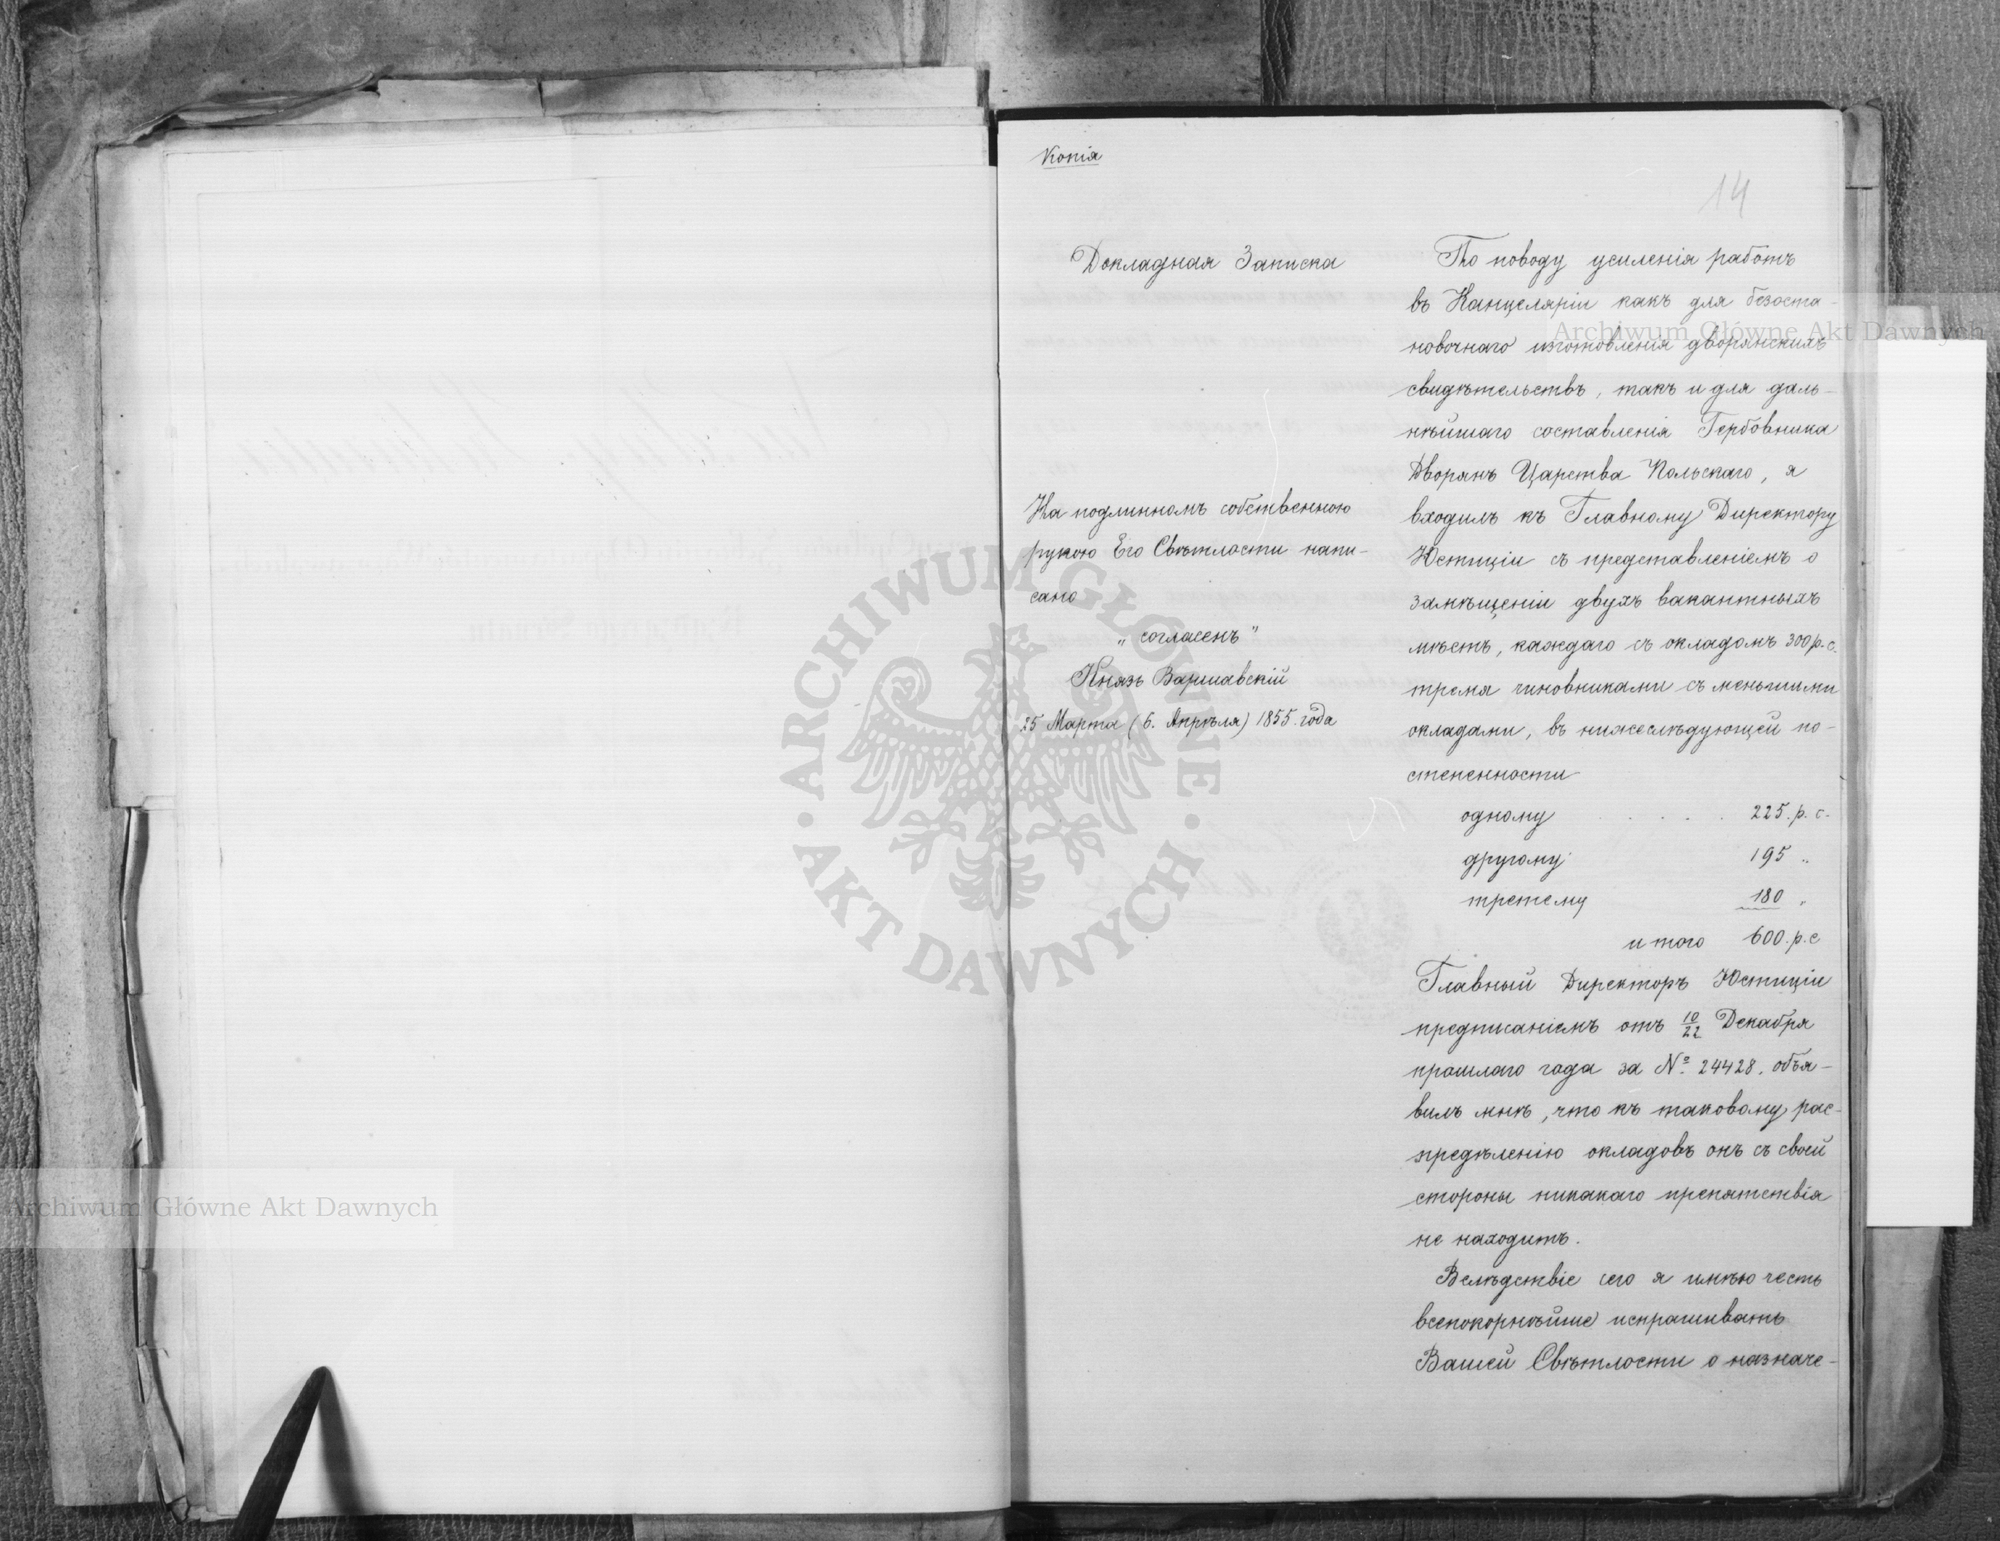 Копія
14
Докладная Записка
На подлинномъ собственною
рукою Его Свѣтлости напи-
сано
„согласенъ"
Князь Варшавскій
25 Марта (6. Апрѣля) 1855. года
По поводу усиленія работъ
въ Канцеляріи какъ для безоста-
новочнаго изготовленія дворянскихъ
свидѣтельствъ, такъ и для даль-
нѣйшаго составленія Гербовника
Дворянъ Царства Польскаго, я
входилъ къ Главному Директору
Юстиціи съ представленіемъ о
замѣщеніи двухъ вакантныхъ
мѣстъ, каждаго съ окладомъ 300 р. с.
тремя чиновниками съ меньшими
окладами, въ нижеслѣдующей по-
степенности
одному . . . . 225. р. с.
другому 195 "
третему 180 "
итого 600. р. с
Главный Директоръ Юстиціи
предписаніемъ отъ 10/22 Декабря
прошлаго года за № 24428. объя-
вилъ мнѣ, что къ таковому рас-
предѣленію окладовъ онъ съ своей
стороны никакаго препятствія
не находитъ.
Вслѣдствіе сего я имѣю честь
всепокорнѣйше испрашивать
Вашей Свѣтлости о назначе-
Archiwum Główne Akt Dawnych
Archiwum Główne Akt Dawnych
ARCHIWUM GŁÓWNE · AKT DAWNYCH ·